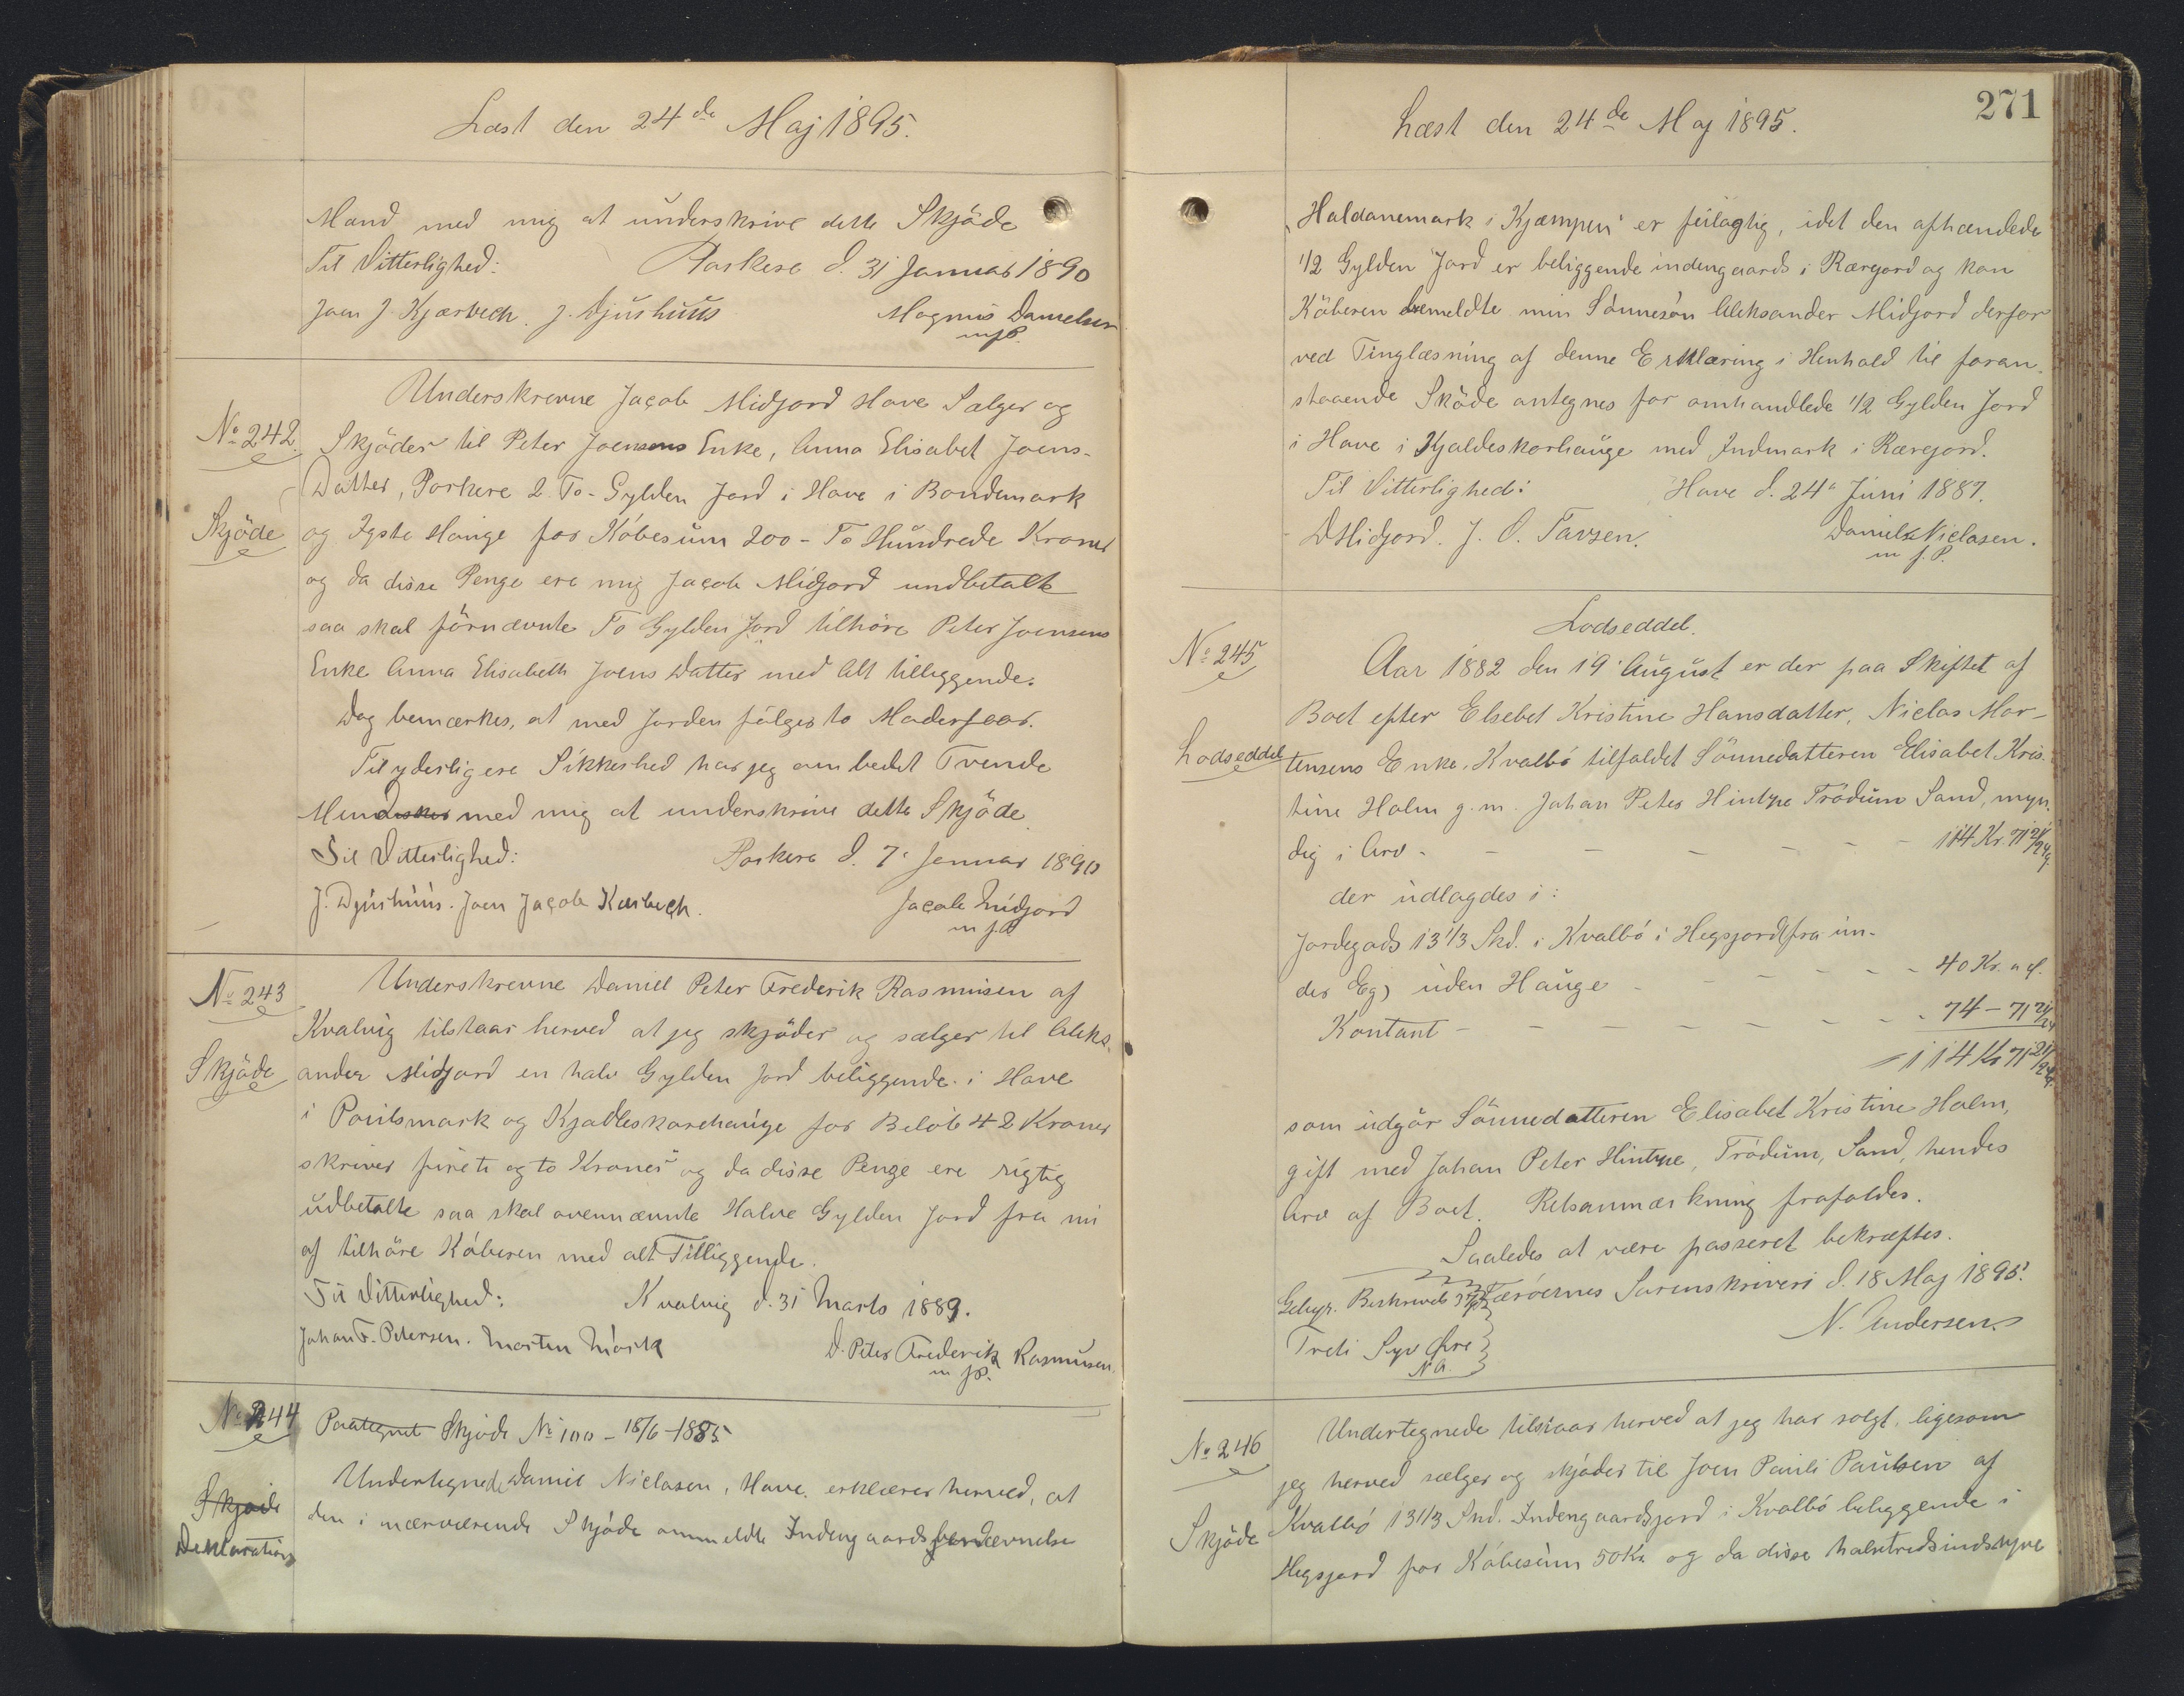 Læst den 24de Maj 1895.
Mand med mig at underskrive dette Skjöde
Til Vitterlighed: Porkere d. 31 Januar 1890
Joen J. Kjærbech. J. Djúshuús Magnus Danielsen
m.f.P.
Nº 242.
Skjöde
Underskrevne Jacob Midjord Hove Sælger og
Skjöder til Peter Joensens Enke, Anna Elisabet Joens-
Datter, Porkere 2. To- Gylden Jord i Hove i Bondemark
og Ygste Hauge for Köbesum 200 - To Hundrede Kroner
og da disse Penge ere mig Jacob Midjord undbetalt
saa skal förnævnte To Gylden Jord tilhöre Peter Joensens
Enke Anna Elisabeth Joens Datter med Alt tilliggende.
Dog bemærkes, at med Jorden fölger to Moderfaar.
Til yderligere Sikkerhed har jeg ombedet Tvende
Mendesker med mig at underskrive dette Skjöde.
Til Vitterlighed: Porkere d. 7' Januar 1890
J. Djúshuús. Joen Jacob Kærbech. Jacob Midjord
m f.P.
Nº 243
Skjöde
Underskrevne Daniel Peter Frederik Rasmusen af
Kvalvig tilstaar herved at jeg skjöder og sælger til Aleks-
ander Midjord en halv Gylden Jord beliggende i Hove
i Poulsmark og Kjadleskorehauge for Belöb 42 Kroner
skriver fireti og to Kroner" og da disse Penge ere rigtig
udbetalte saa skal ovennævnte Halve Gylden Jord fra nu
af tilhöre Köberen med alt Tilliggende.
Til Vitterlighed: Kvalvig d. 31 Marts 1889.
Johan F. Petersen. Morten Mörk D. Peter Frederik Rasmusen.
m f.P.
Nº 244
Skjøde
Deklaration
Paategnet Skjøde Nº 100 - 18/6 - 1885
Undertegnede Daniel Niclasen, Hove, erklærer herved, at
den i nærværende Skjöde ommeldte Indengaards benævnelse
271
Læst den 24de Maj 1895.
"Haldanemark i Kjæmpen" er feilagtig, idet den afhændede
1/2 Gylden Jord er beliggende indengaards i Rærgjord og kan
Köberen bemeldte min Sönnesön Aleksander Midjord derfor
ved Tinglæsning af denne Erklæring i Henhold til foran
staaende Sköde antegnes for omhandlede 1/2 Gylden Jord
i Hove i Kjaldeskorhauge med Indmark i Rærejord.
Til Vitterlighed: Hove d. 24' Juni 1887.
D Midjord. J. O. Tavsen. Daniel Niclasen.
m f.P.
Nº 245
Lodseddel
Lodseddel.
Aar 1882 den 19' August er der paa Skiftet af
Boet efter Elsebet Kristine Hansdatter, Niclas Mor-
tensens Enke, Kvalbö tilfaldet Sönnedatteren Elisabet Kris-
tine Holm g. m. Johan Peter Hintze Trödum Sand, myn-
dig i Arv - - - - - - 114 Kr. 71 21/24 ø.
der udlagdes i:
Jordegods 13 1/3 Skd. i Kvalbö i Hegsjord (fra un-
der Eg) uden Hauge - - - - - 40 Kr. " ø.
Kontant - - - - - - - 74 - 71 21/24
= 114 Kr 71 21/24 ø.
som udgör Sönnedatteren Elisabet Kristine Holm,
gift med Johan Peter Hintze, Trödum, Sand, hendes
Arv af Boet. Retsanmærkning frafaldes.
Saaledes at være passeret bekræftes.
Gebyr. Beskrivels 37 ø Færöernes Sorenskriveri d. 18 Maj 1895.
Treti Syv Øre N. Andersen.
N A.
Nº 246
Skjöde
Undertegnede tilstaar herved at jeg har solgt, ligesom
jeg herved sælger og skjöder til Joen Pauli Paulsen af
Kvalbö 13 1/3 Skd. Indengaardsjord i Kvalbö beliggende i
Hegsjord for Köbesum 50 Kr. og da disse halvtredsindstyve